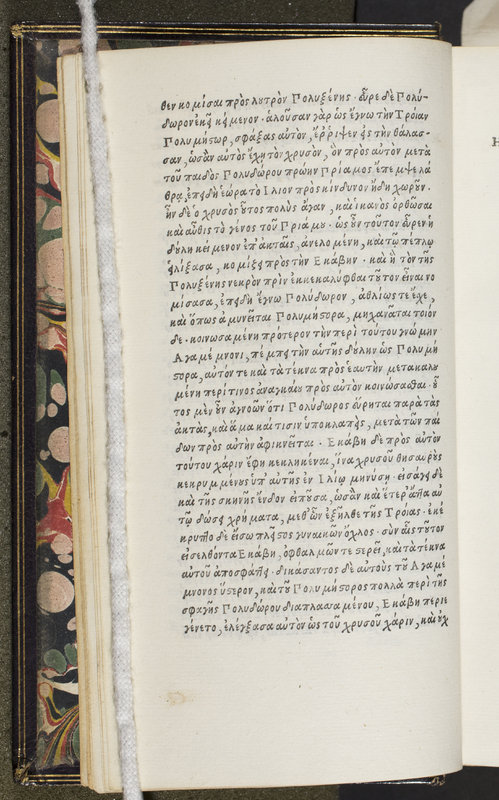 θεν κομίσαι πρὸς λυτρὸν Πολυξένης· εὗρε δὲ Πολύ-
δωρον ἐκεῖ κείμενον· ἁλοῦσαν γὰρ ὡς ἔγνω τὴν Τροίαν
Πολυμήστωρ, σφάξας αὐτὸν, ἔρριψεν εἰς τὴν θάλασ-
σαν, ὡσὰν αὐτὸς ἔχῃ τὸν χρυσὸν, ὃν πρὸς αὐτὸν μετὰ
τοῦ παιδὸς Πολυδώρου πρώην Πρίαμος ἔπεμψε λά
θρα, ἐπειδὴ ἑώρα τὸ Ἴλιον πρὸς κίνδυνον ἤδη χωροῦν.
ἦν δὲ ὁ χρυσὸς οὗτος πολὺς ἄγαν, καὶ ἱκανὸς ὀρθῶσαι
καὶ αὖθις τὸ γένος τοῦ Πριάμου. ὡς οὖν τοῦτον εὗρεν ἡ
δούλη κείμενον ἐπ' ἀκταῖς, ἀνελομένη, καὶ τῷ πέπλῳ
εἱλίξασα, κομίζει πρὸς τὴν Ἑκάβην· καὶ ἣ τὸν τῆς
Πολυξένης νεκρὸν πρὶν ἐκκεκαλύφθαι τοῦτον εἶναι νο
μίσασα, ἐπειδὴ ἔγνω Πολύδωρον, ἀθλίως τε ἔσχε,
καὶ ὅπως ἀμυνεῖται Πολυμήστορα, μηχανᾶται τοιόν
δε· κοινωσαμένη πρότερον τὴν περὶ τούτου γνώμην
Ἀγαμέμνονι, πέμπει τὴν αὐτῆς δούλην ὡς Πολυμή
στορα, αὐτόν τε καὶ τὰ τέκνα πρὸς ἑαυτὴν μετακαλου
μένη περί τινος ἀναγκαίου πρὸς αὐτὸν κοινώσασθαι. οὗ
τος μὲν οὖν ἀγνοῶν ὅτι Πολύδωρος εὕρηται παρὰ τὰς
ἀκτὰς, καὶ ἅμα καί τισιν ὑποκλαπεὶς, μετὰ τῶν παί
δων πρὸς αὐτὴν ἀφικνεῖται. Ἑκάβη δὲ πρὸς αὐτὸν
τούτου χάριν ἔφη κεκληκέναι, ἵνα χρυσοῦ θησαυροὺς
κεκρυμμένους ὑπ' αὐτῆς ἐν Ἰλίῳ μηνύσῃ· εἰσάγει δὲ
καὶ τῆς σκηνῆς ἔνδον εἰποῦσα, ὡσὰν καὶ ἕτερ' ἄττα αὐ
τῷ δώσει χρήματα, μεθ' ὧν ἐξῆλθε τῆς Τροίας. ἐκέ
κρυπτο δὲ εἴσω πλεῖστος γυναικῶν ὄχλος· σὺν αἷς τοῦτον
εἰσελθόντα Ἑκάβη, ὀφθαλμῶν τε στερεῖ, καὶ τὰ τέκνα
αὐτοῦ ἀποσφάττει· δικάσαντος δὲ αὐτοὺς τοῦ Ἀγαμέ
μνονος ὕστερον, καὶ τοῦ Πολυμήστορος πολλὰ περὶ τῆς
σφαγῆς Πολυδώρου διαπλασαμένου, Ἑκάβη περιε
γένετο, ἐλέγξασα αὐτὸν ὡς τοῦ χρυσοῦ χάριν, καὶ οὐχ